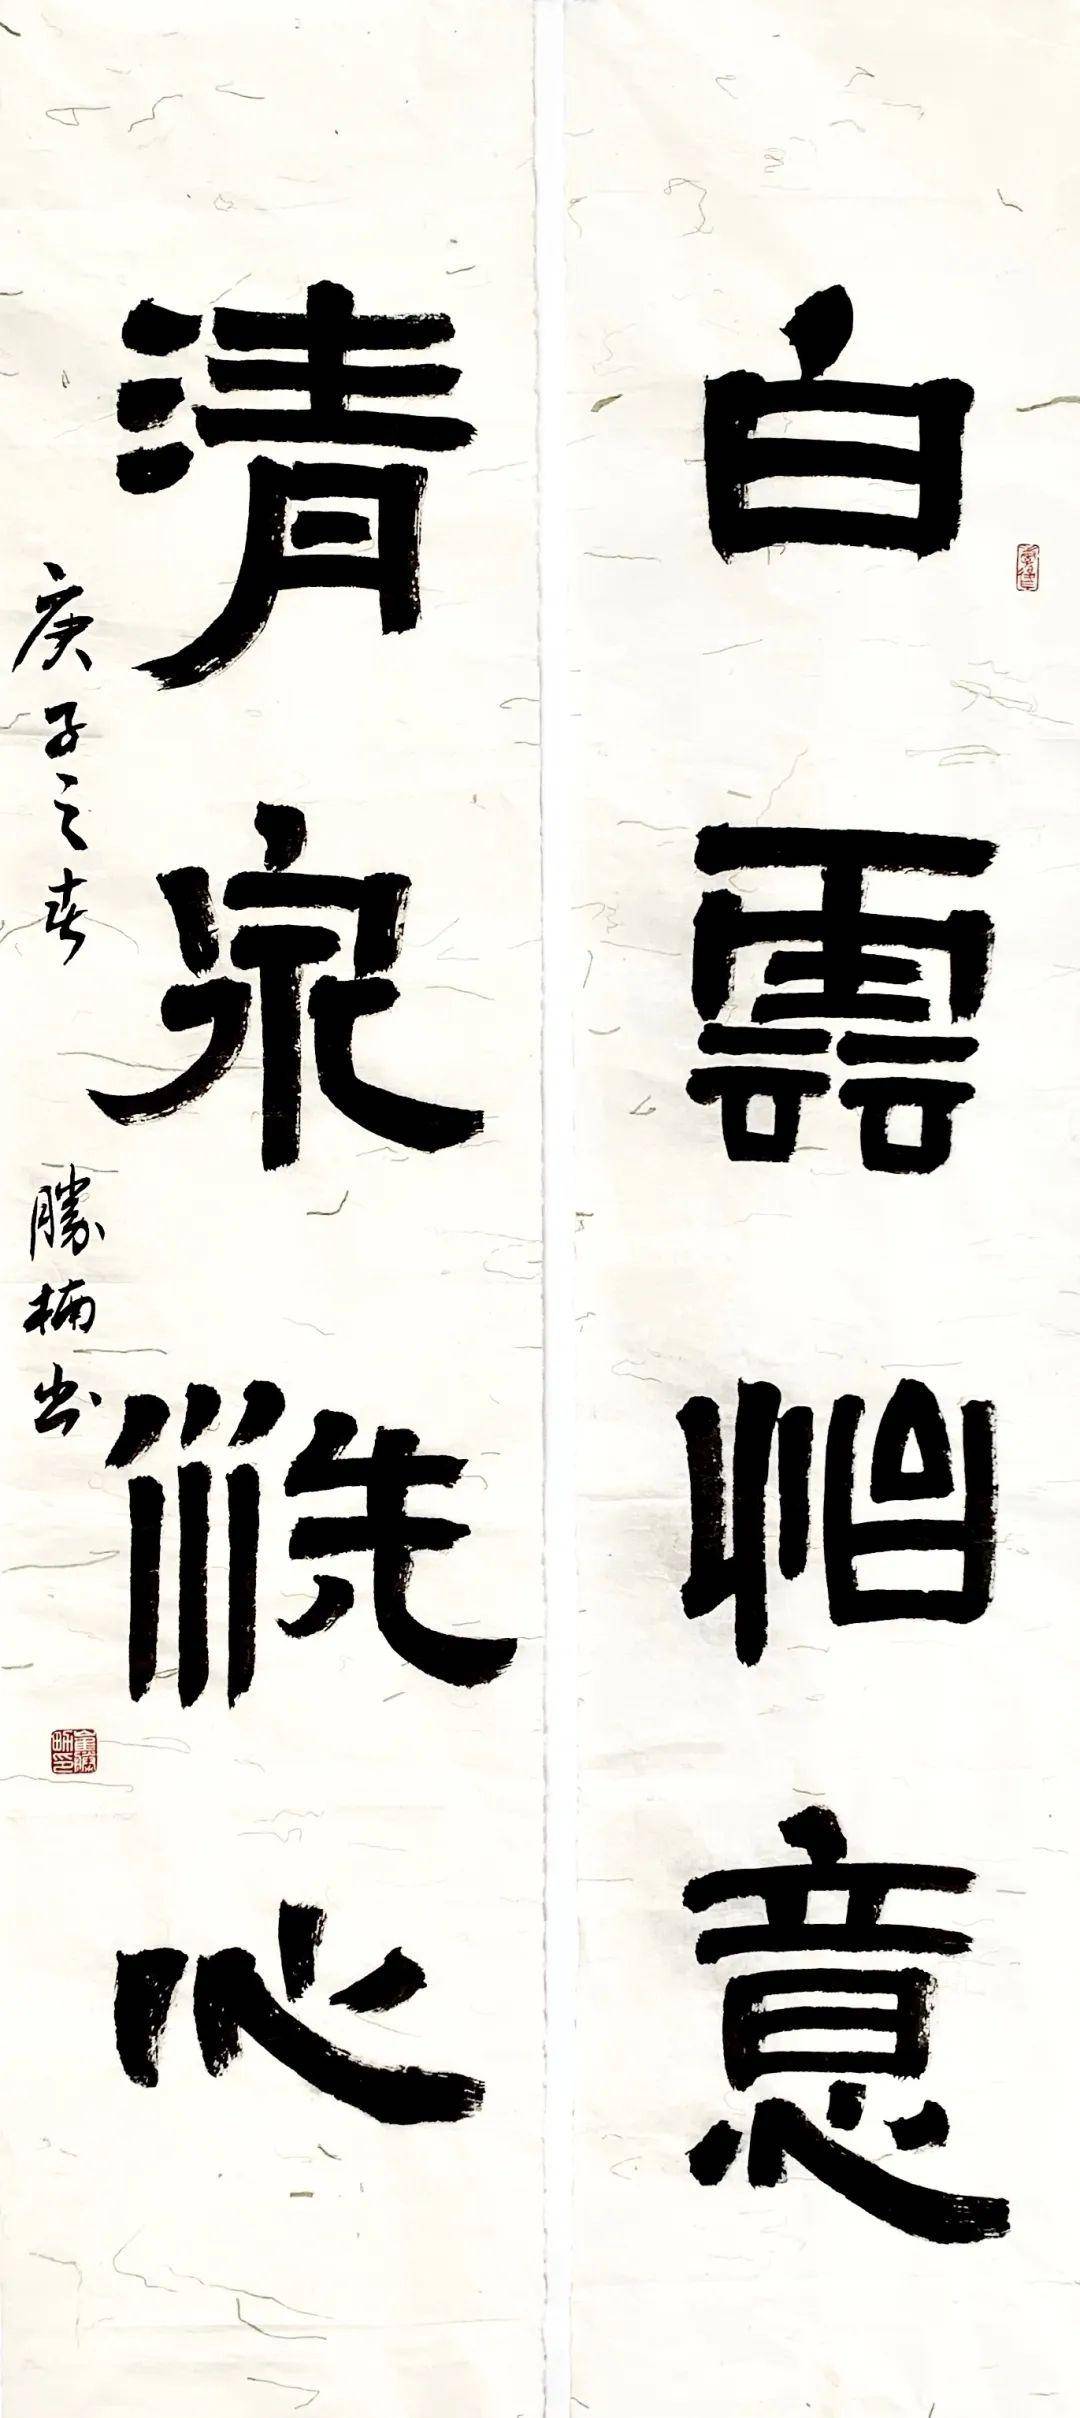 白雲怡意
清泉洗心
庚子之春 勝楠书